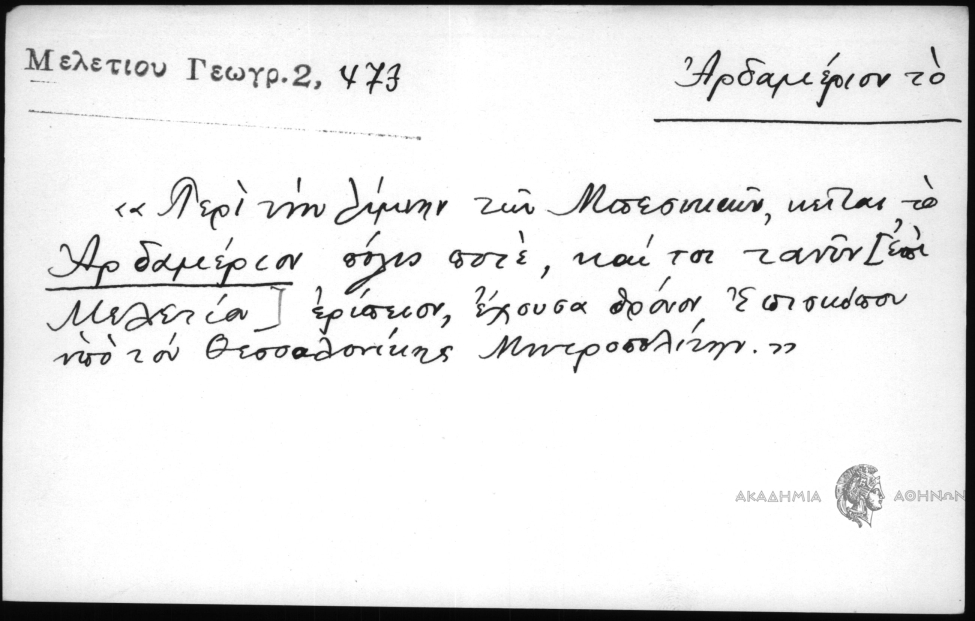 Μελετίου Γεωγρ. 2, 473
Ἀρδαμέριον τὸ
«Περὶ τὴν λίμνην τῶν Μπεσικίων, κεῖται τὸ
Ἀρδαμέριον πόλις ποτὲ, καί τοι τανῦν [ἐπὶ
Μελετίου] ἐρίπειον, ἔχουσα θρόνον Ἐπισκόπου
ὑπὸ τὸν Θεσσαλονίκης Μητροπολίτην.»
ΑΚΑΔΗΜΙΑ ΑΘΗΝΩΝ